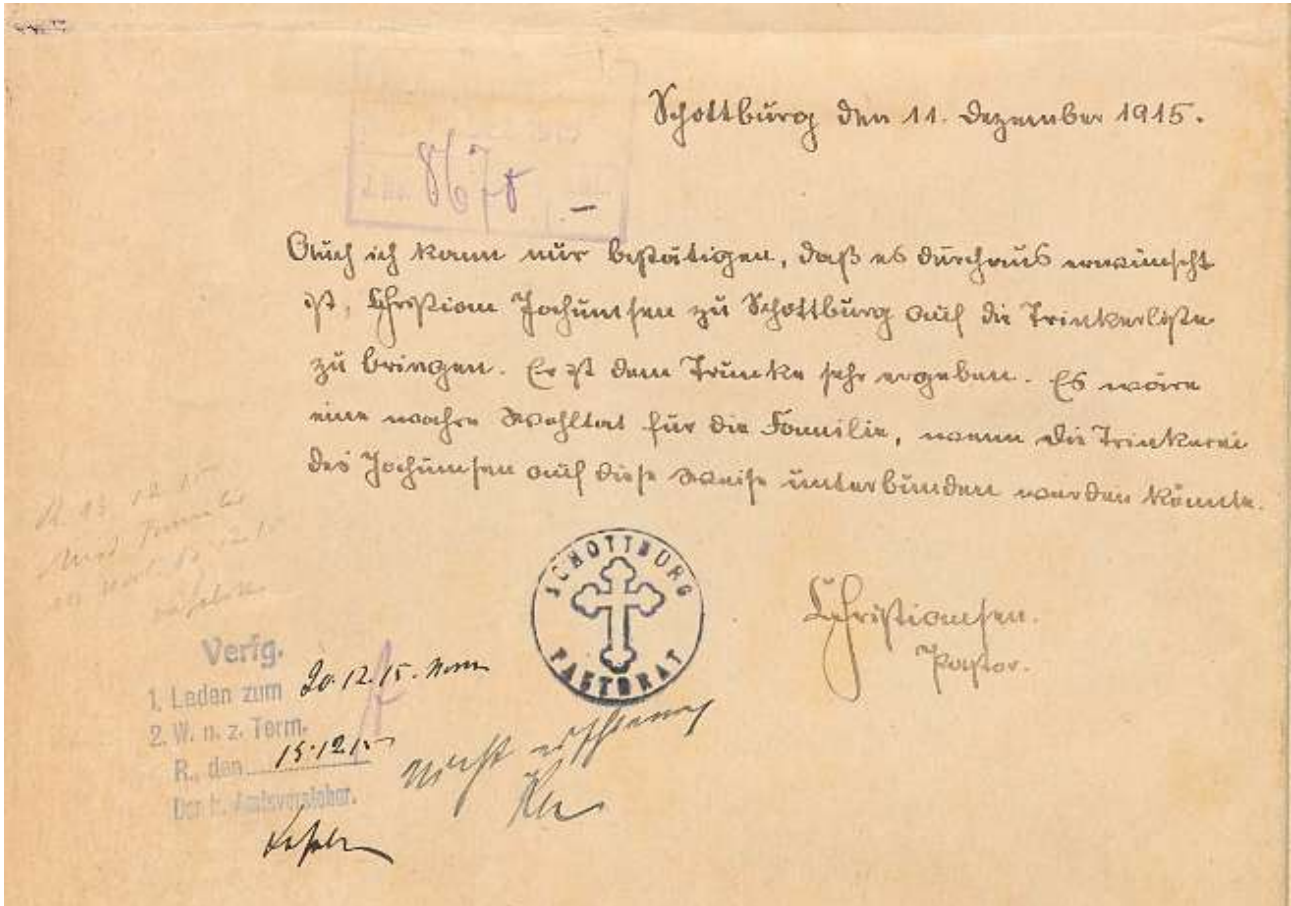 Schottburg den 11. Dezember 1915.
J. No. 8678
Auch ich kann nur bestätigen, daß es durchaus erwünscht
ist, Christian Jochumsen zu Schottburg auf die Trinkerliste
zu bringen. Er ist dem Trunke sehr ergeben. Es wäre
eine wahre Wohltat für die Familie, wenn die Trinkerei
des Jochumsen auf diese Weise unterbunden werden könnte.
Christiansen.
Pastor.
SCHOTTBURG
PASTORAT
R. 13. 12. 15
Verfg.
1. Laden zum 20.12.15. Vorm
2. W. n. z. Term.
R., den 15.12.15
Der k. Amtsvorsteher.
nicht erschienen